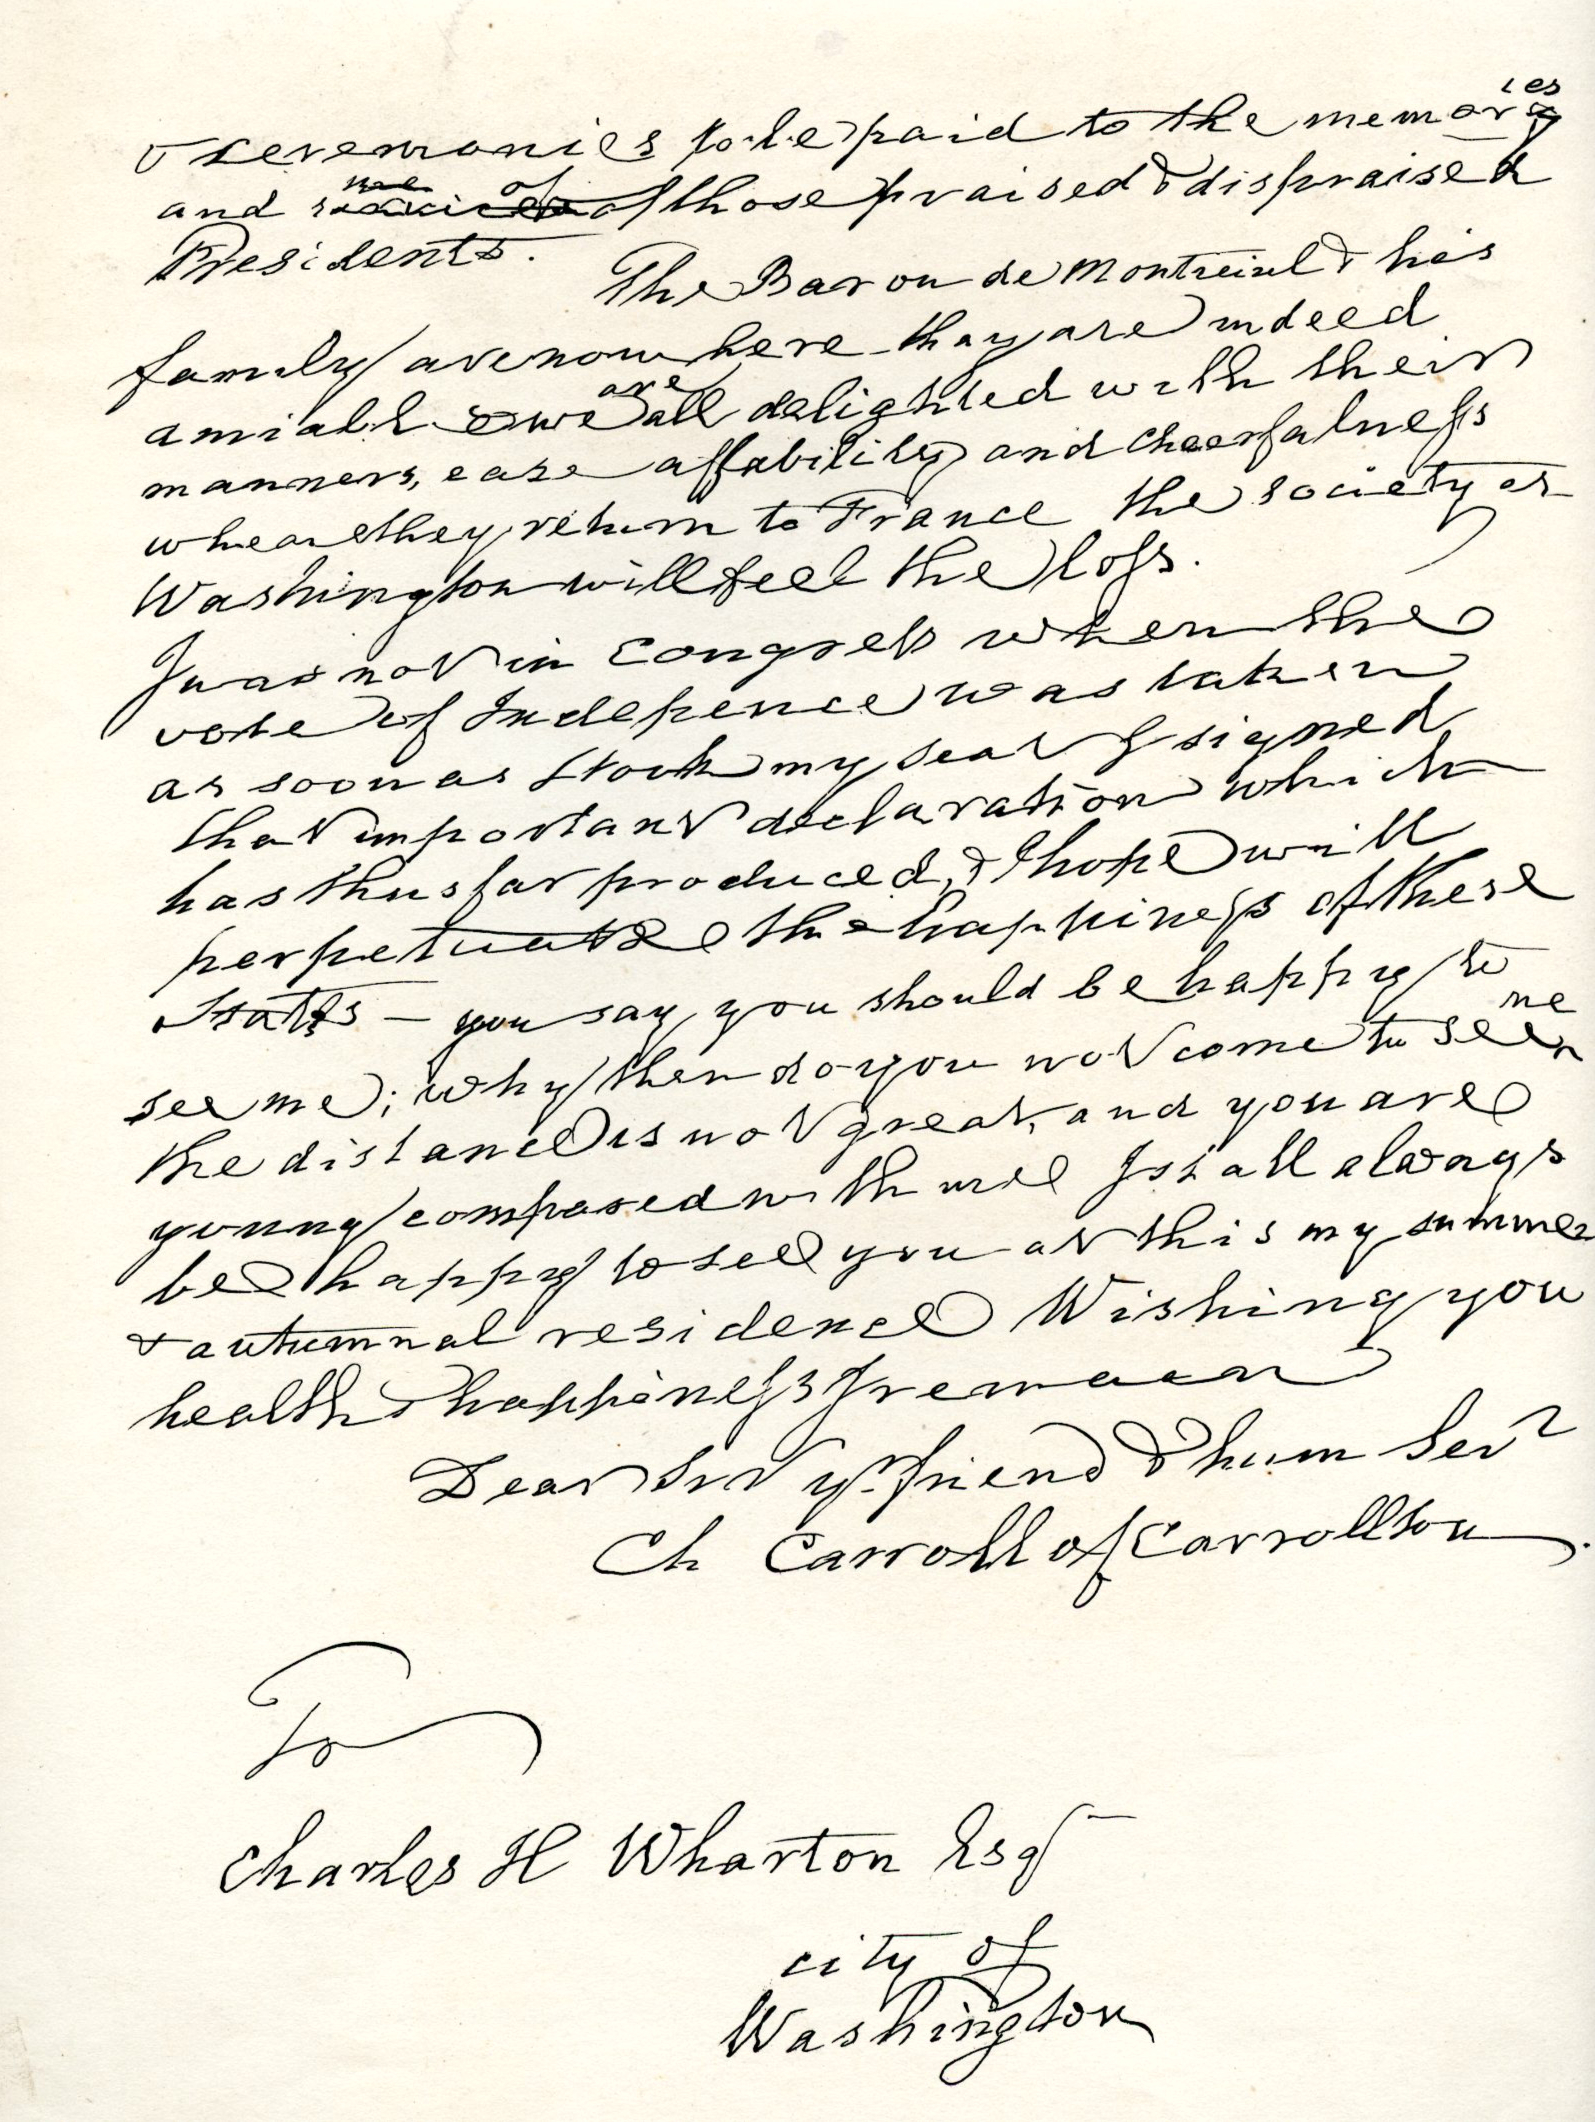 & ceremonies to be paid to the memories
and of those praised & dispraised
Presidents. The Baron de Montreiul & his
family are now here they are indeed
amiable & we are all delighted with their
manners, ease affability and cheerfulness
when they return to France the society at
Washington will feel the loss.
I was not in Congress when the
vote of Indepence was taken
as soon as I took my seat I signed
that important declaration which
has thus far produced, & I hope will
perpetuate the happiness of these
States — you say you should be happy to
see me; why then do you not come to see me
the distance is not great, and you are
young compared with me I shall always
be happy to see you at this my summer
& autumnal residence Wishing you
health & happiness I remain
Dear Sir yr. friend & hum Ser
Ch Carroll of Carrollton.
To
Charles H Wharton Esq
city of
Washington